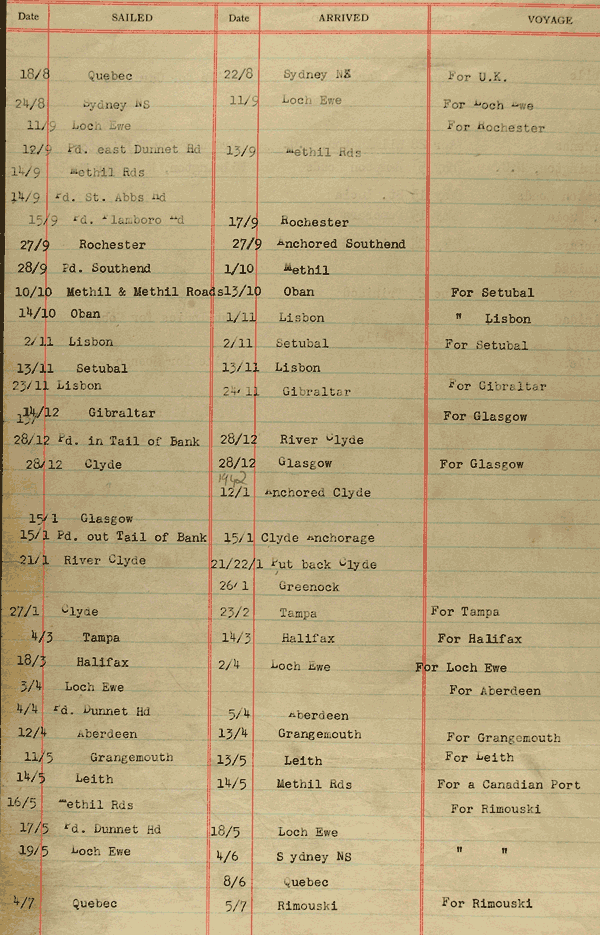 Date SAILED Date ARRIVED VOYAGE
18/8 Quebec 22/8 Sydney NS For U.K.
24/8 Sydney NS 11/9 Loch Ewe For Loch Ewe
11/9 Loch Ewe For Rochester
12/9 Pd. east Dunnet Hd 13/9 Methil Rds
14/9 Methil Rds
14/9 Pd. St. Abbs Hd
15/9 Pd. Flamboro Hd 17/9 Rochester
27/9 Rochester 27/9 Anchored Southend
28/9 Pd. Southend 1/10 Methil
10/10 Methil & Methil Roads 13/10 Oban For Setubal
14/10 Oban 1/11 Lisbon " Lisbon
2/11 Lisbon 2/11 Setubal For Setubal
13/11 Setubal 13/11 Lisbon
23/11 Lisbon 24/11 Gibraltar For Gibraltar
14/12 Gibraltar For Glasgow
28/12 Pd. in Tail of Bank 28/12 River Clyde
28/12 Clyde 28/12 Glasgow For Glasgow
1942
12/1 Anchored Clyde
15/1 Glasgow
15/1 Pd. out Tail of Bank 15/1 Clyde Anchorage
21/1 River Clyde 21/22/1 Put back Clyde
26/1 Greenock
27/1 Clyde 23/2 Tampa For Tampa
4/3 Tampa 14/3 Halifax For Halifax
18/3 Halifax 2/4 Loch Ewe For Loch Ewe
3/4 Loch Ewe For Aberdeen
4/4 Pd. Dunnet Hd 5/4 Aberdeen
12/4 Aberdeen 13/4 Grangemouth For Grangemouth
11/5 Grangemouth 13/5 Leith For Leith
14/5 Leith 14/5 Methil Rds For a Canadian Port
16/5 Methil Rds For Rimouski
17/5 Pd. Dunnet Hd 18/5 Loch Ewe
19/5 Loch Ewe 4/6 S ydney NS " "
8/6 Quebec
4/7 Quebec 5/7 Rimouski For Rimouski